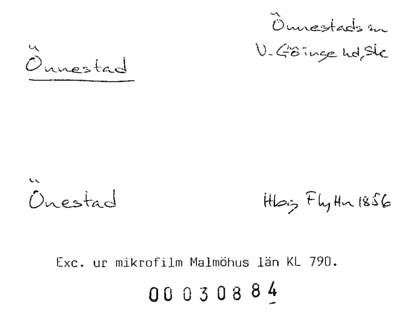 Önnestads sn
V. Göinge hd, Sk
Önnestad
Önestad
Hbg FlyHn 1856
Exc. ur mikrofilm Malmöhus län KL 790.
00030884